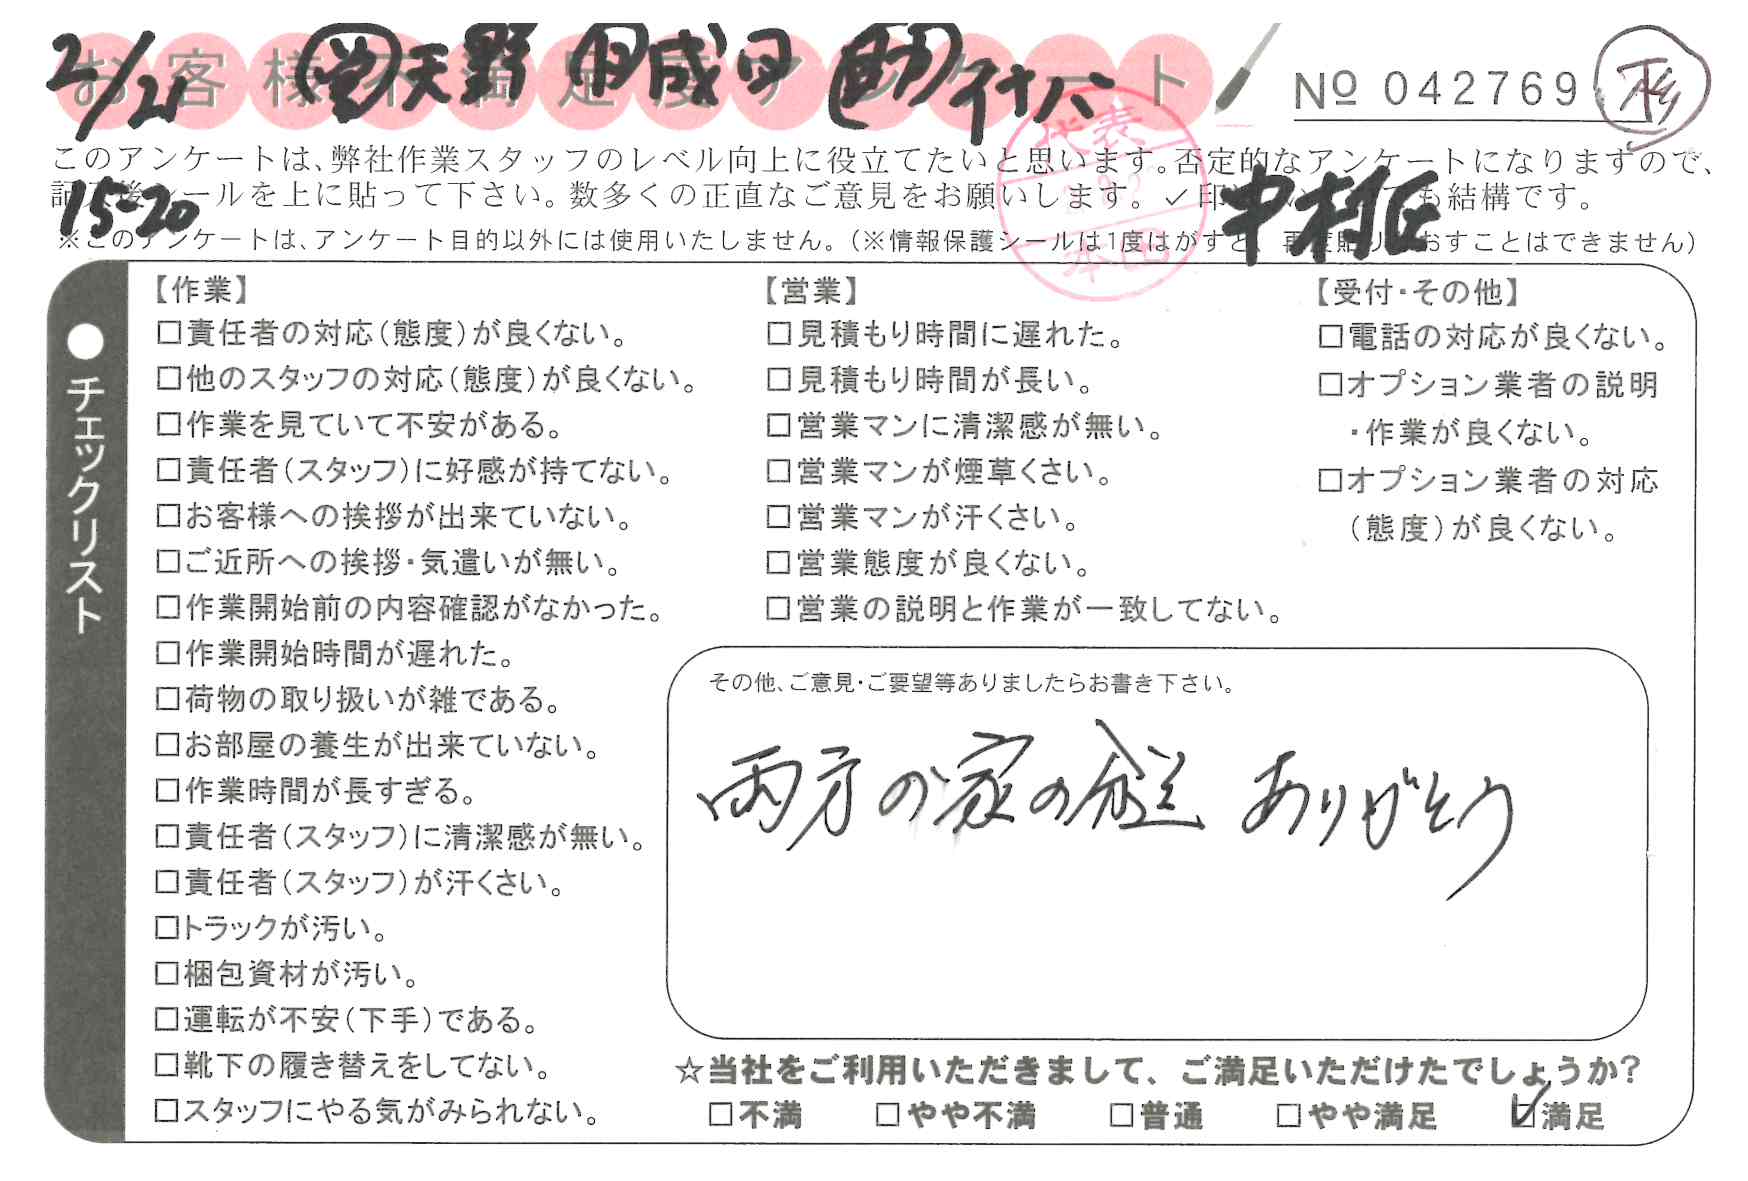 2/21 天野
お客様不満足度アンケート
No 042769
このアンケートは、弊社作業スタッフのレベル向上に役立てたいと思います。否定的なアンケートになりますので、
シールを上に貼って下さい。数多くの正直なご意見をお願いします。✓印 も結構です。
15-20
中村区
代表
本田
※このアンケートは、アンケート目的以外には使用いたしません。(※情報保護シールは1度はがすと、再度貼りなおすことはできません)
●チェックリスト
【作業】
□責任者の対応(態度)が良くない。
□他のスタッフの対応(態度)が良くない。
□作業を見ていて不安がある。
□責任者(スタッフ)に好感が持てない。
□お客様への挨拶が出来ていない。
□ご近所への挨拶・気遣いが無い。
□作業開始前の内容確認がなかった。
□作業開始時間が遅れた。
□荷物の取り扱いが雑である。
□お部屋の養生が出来ていない。
□作業時間が長すぎる。
□責任者(スタッフ)に清潔感が無い。
□責任者(スタッフ)が汗くさい。
□トラックが汚い。
□梱包資材が汚い。
□運転が不安(下手)である。
□靴下の履き替えをしてない。
□スタッフにやる気がみられない。
【営業】
□見積もり時間に遅れた。
□見積もり時間が長い。
□営業マンに清潔感が無い。
□営業マンが煙草くさい。
□営業マンが汗くさい。
□営業態度が良くない。
□営業の説明と作業が一致してない。
【受付・その他】
□電話の対応が良くない。
□オプション業者の説明
・作業が良くない。
□オプション業者の対応
(態度)が良くない。
その他、ご意見・ご要望等ありましたらお書き下さい。
両方の家の ありがとう
☆当社をご利用いただきまして、ご満足いただけたでしょうか?
□不満 □やや不満 □普通 □やや満足 ☑満足